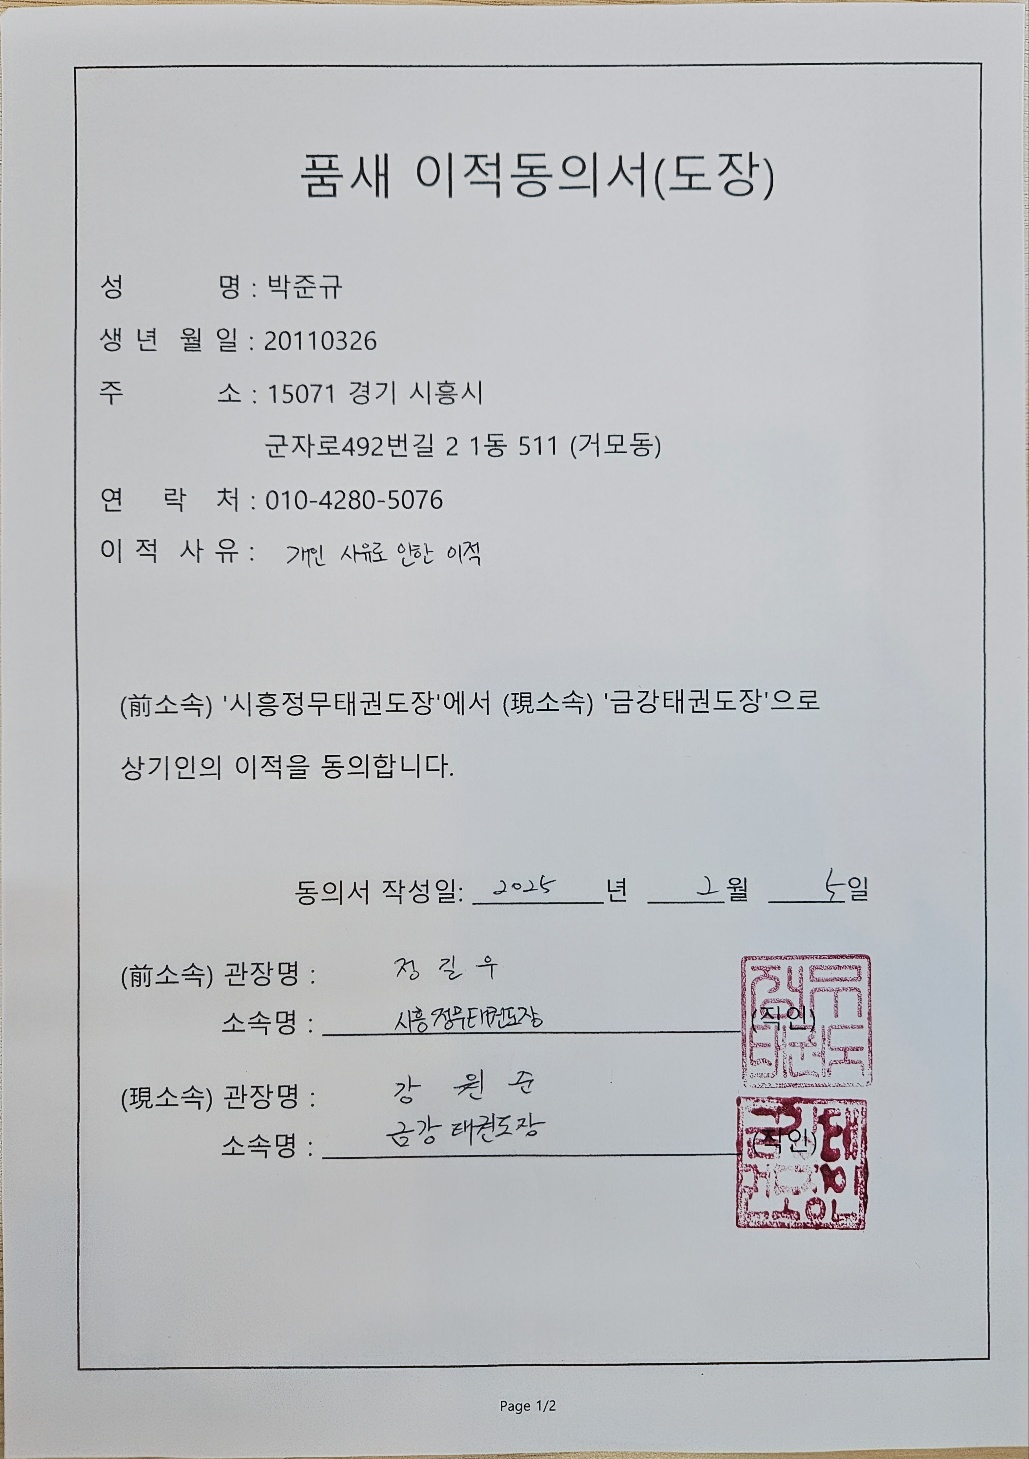 품새 이적동의서(도장)
성 명 : 박준규
생 년 월 일 : 20110326
주 소 : 15071 경기 시흥시
군자로492번길 2 1동 511 (거모동)
연 락 처 : 010-4280-5076
이 적 사 유 : 개인 사유로 인한 이적
(前소속) '시흥정무태권도장'에서 (現소속) '금강태권도장'으로
상기인의 이적을 동의합니다.
동의서 작성일: 2025 년 2월 5일
(前소속) 관장명 : 정 길 우
소속명 : 시흥정무태권도장 (직인)
(現소속) 관장명 : 강 원 준
소속명 : 금강태권도장 (직인)
Page 1/2